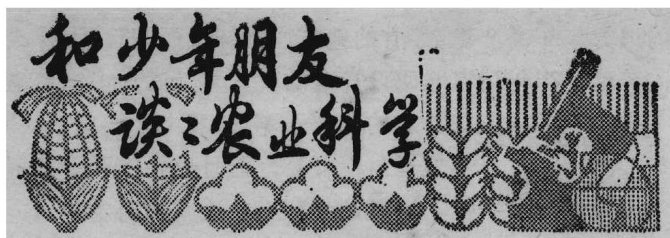 和少年朋友
谈〻农业科学